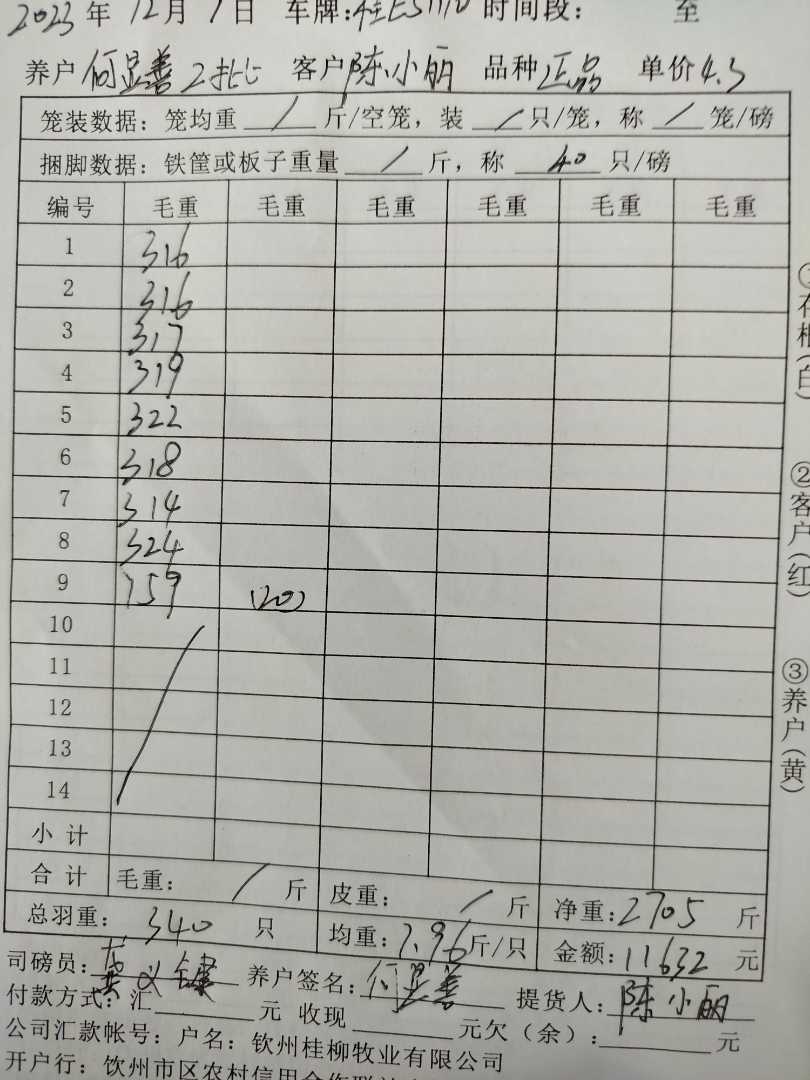 2023 年 12 月 1 日 车牌: 时间段: 至
养户 何显善 2批 客户 陈小丽 品种 正品 单价 4.3
笼装数据: 笼均重 / 斤/空笼, 装 / 只/笼, 称 / 笼/磅
捆脚数据: 铁筐或板子重量 / 斤, 称 40 只/磅
编号 毛重 毛重 毛重 毛重 毛重 毛重
1 316
2 316
3 317
4 319
5 322
6 318
7 314
8 324
9 159 (20)
10
11
12
13
14
小 计
合 计 毛重: / 斤 皮重: / 斤 净重: 2705 斤
总羽重: 340 只 均重: 7.96 斤/只 金额: 11632 元
司磅员: 黄 养户签名: 何显善 提货人: 陈小丽
付款方式: 汇 元 收现 元欠(余): 元
公司汇款帐号: 户名: 钦州桂柳牧业有限公司
开户行: 钦州市区农村信用合作联社
②客户(红)
③养户(黄)